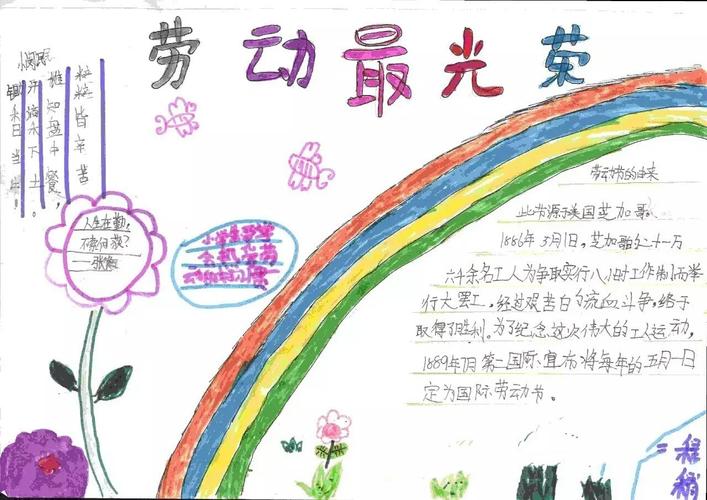 劳动最光荣
锄禾日当午。
汗滴禾下土。
谁知盘中餐,
粒粒皆辛苦
人生在勤,
不索何获?
——张衡
小学生要
劳
动的好习惯
劳动节的由来
此节源于美国芝加哥。
1886年5月1日,芝加哥的二十一万
六千余名工人为争取实行八小时工作制而举
行大罢工,经过艰苦的流血斗争,终于
取得了胜利。为了纪念这次伟大的工人运动,
1889年7月第二国际宣布将每年的五月一日
定为国际劳动节。